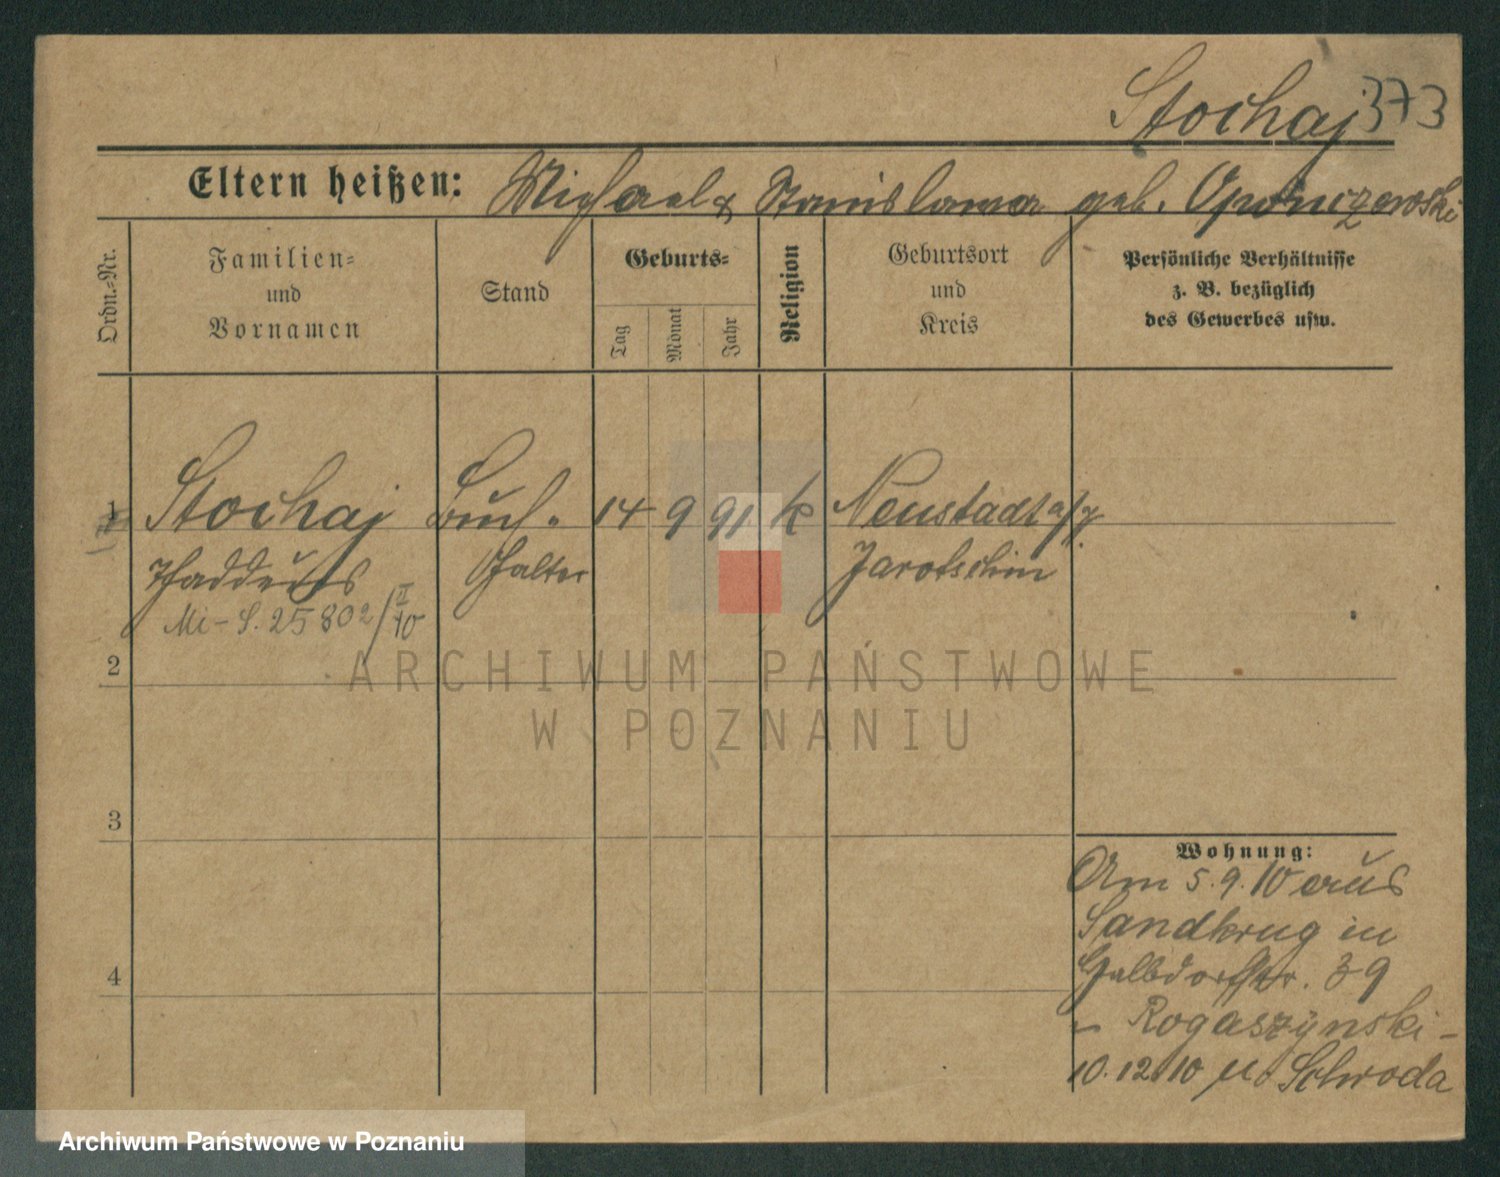 Stochaj 373
Eltern heißen: Michael & Stanislawa geb.
Ordn.-Nr.
Familien-
und
Vornamen
Stand
Geburts-
Tag
Monat
Jahr
Religion
Geburtsort
und
Kreis
Persönliche Verhältnisse
z. B. bezüglich
des Gewerbes usw.
1 Stochaj Buch- 14 9 91 k Neustadt a/
Thaddeus halter Jarotschin
Mi-S. 25802/II 10
2
ARCHIWUM PAŃSTWOWE
W POZNANIU
3
4
Wohnung:
Am 5.9.10 aus
Sandkrug in
39
Rogaszynski-
10.12.10 u. Schroda
Archiwum Państwowe w Poznaniu